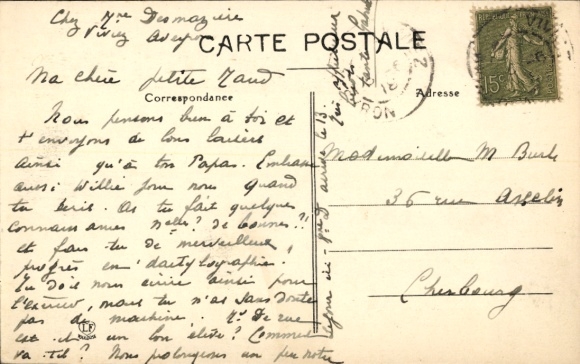 Chez Mme Desmazière
Viviez Aveyron
CARTE POSTALE
Ma chère petite Maud
Correspondance
Adresse
Nous pensons bien à toi et
t'envoyons de bons baisers
ainsi qu'à ton Papa. Embrasse
aussi Willie pour nous quand
tu écris. As tu fait quelques
connaissances nelles? de bonnes?!
et fais tu de merveilleux
progrès en dactylographie.
Tu dois nous écrire ainsi pour
t'exercer, mais tu n'as sans doute
pas de machine. Mr De rue
est-il un bon élève? Comment
va-t-il? Nous prolongeons un peu notre
séjour ici - arrive le 13
Mademoiselle M Burke
36 rue Asselin
Cherbourg
15c
LF